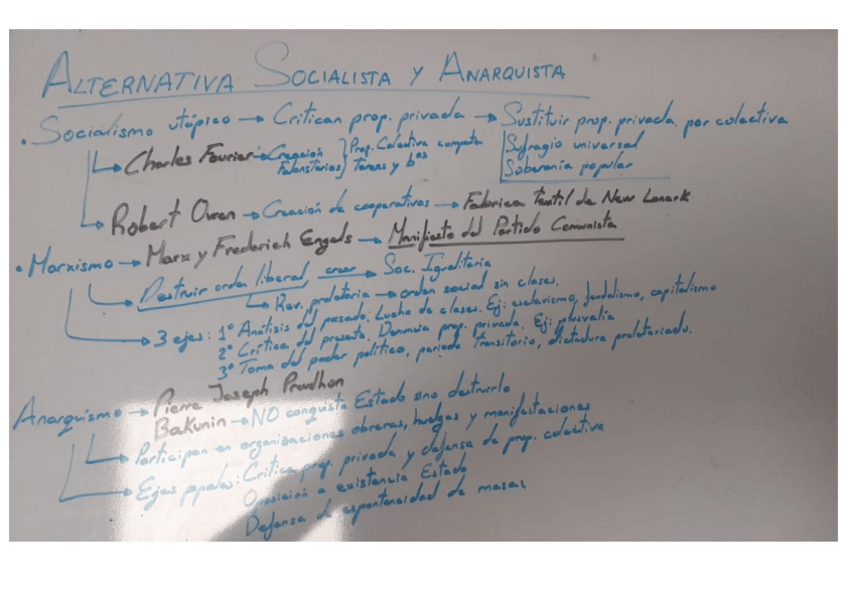 ALTERNATIVA SOCIALISTA Y ANARQUISTA
• Socialismo utópico → Critican prop. privada → Sustituir prop. privada por colectiva
Sufragio universal
Soberanía popular
→ Charles Fourier → Creación Falansterios } Prop. Colectiva comparten tareas y bºs
→ Robert Owen → Creación de cooperativas → Fábrica textil de New Lanark
• Marxismo → Marx y Frederich Engels → Manifiesto del Partido Comunista
→ Destruir orden liberal crear → Soc. Igualitaria
→ Rev. proletaria → orden social sin clases.
→ 3 ejes: 1º Análisis del pasado: Lucha de clases. Ej: esclavismo, feudalismo, capitalismo
2º Crítica del presente. Denuncia prop. privada. Ej: plusvalía
3º Toma del poder político, periodo transitorio, dictadura proletariado.
Anarquismo → Pierre Joseph Proudhon
Bakunin → NO conquista Estado sino destruirlo
→ Participan en organizaciones obreras, huelgas y manifestaciones
→ Ejes ppales: Crítica prop. privada y defensa de prop. colectiva
Oposición a existencia Estado
Defensa de espontaneidad de masas